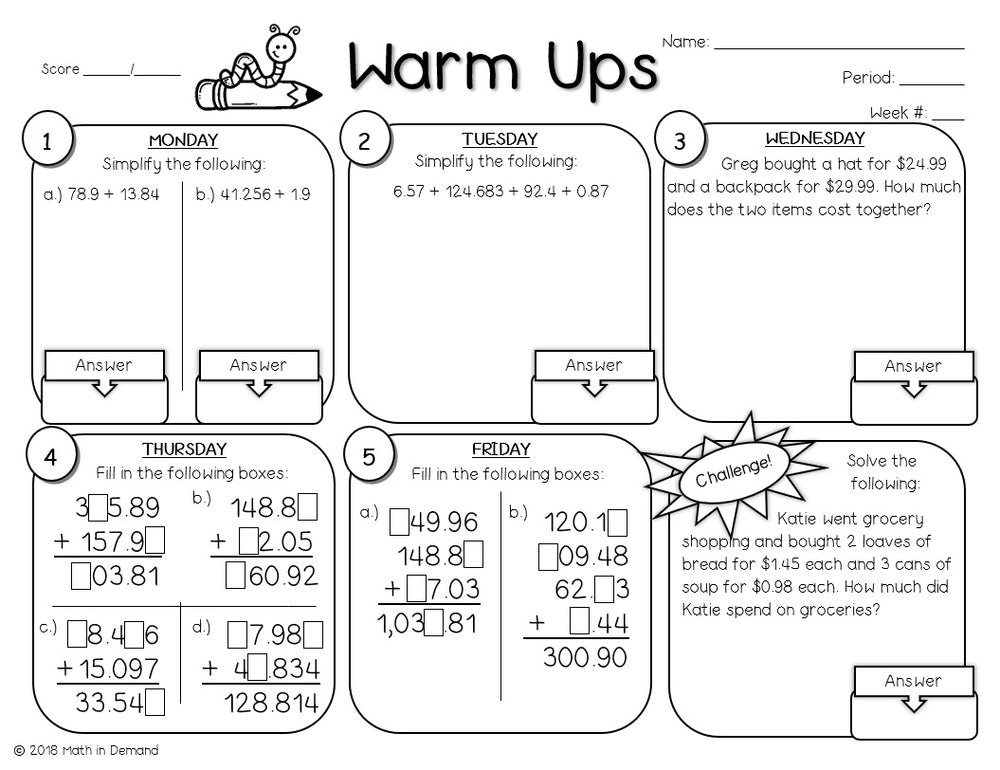 Score _____/_____
Warm Ups
Name: ______________________
Period: ______
Week #: ___
1
MONDAY
Simplify the following:
a.) 78.9 + 13.84
b.) 41.256 + 1.9
Answer
Answer
2
TUESDAY
Simplify the following:
6.57 + 124.683 + 92.4 + 0.87
Answer
3
WEDNESDAY
Greg bought a hat for $24.99
and a backpack for $29.99. How much
does the two items cost together?
Answer
4
THURSDAY
Fill in the following boxes:
3□5.89
+ 157.9□
□03.81
b.)
148.8□
+ □2.05
□60.92
c.)
□8.4□6
+ 15.097
33.54□
d.)
□7.98□
+ 4□.834
128.814
5
FRIDAY
Fill in the following boxes:
a.)
□49.96
148.8□
+ □7.03
1,03□.81
b.)
120.1□
□09.48
62.□3
+ □.44
300.90
Challenge!
Solve the
following:
Katie went grocery
shopping and bought 2 loaves of
bread for $1.45 each and 3 cans of
soup for $0.98 each. How much did
Katie spend on groceries?
Answer
© 2018 Math in Demand